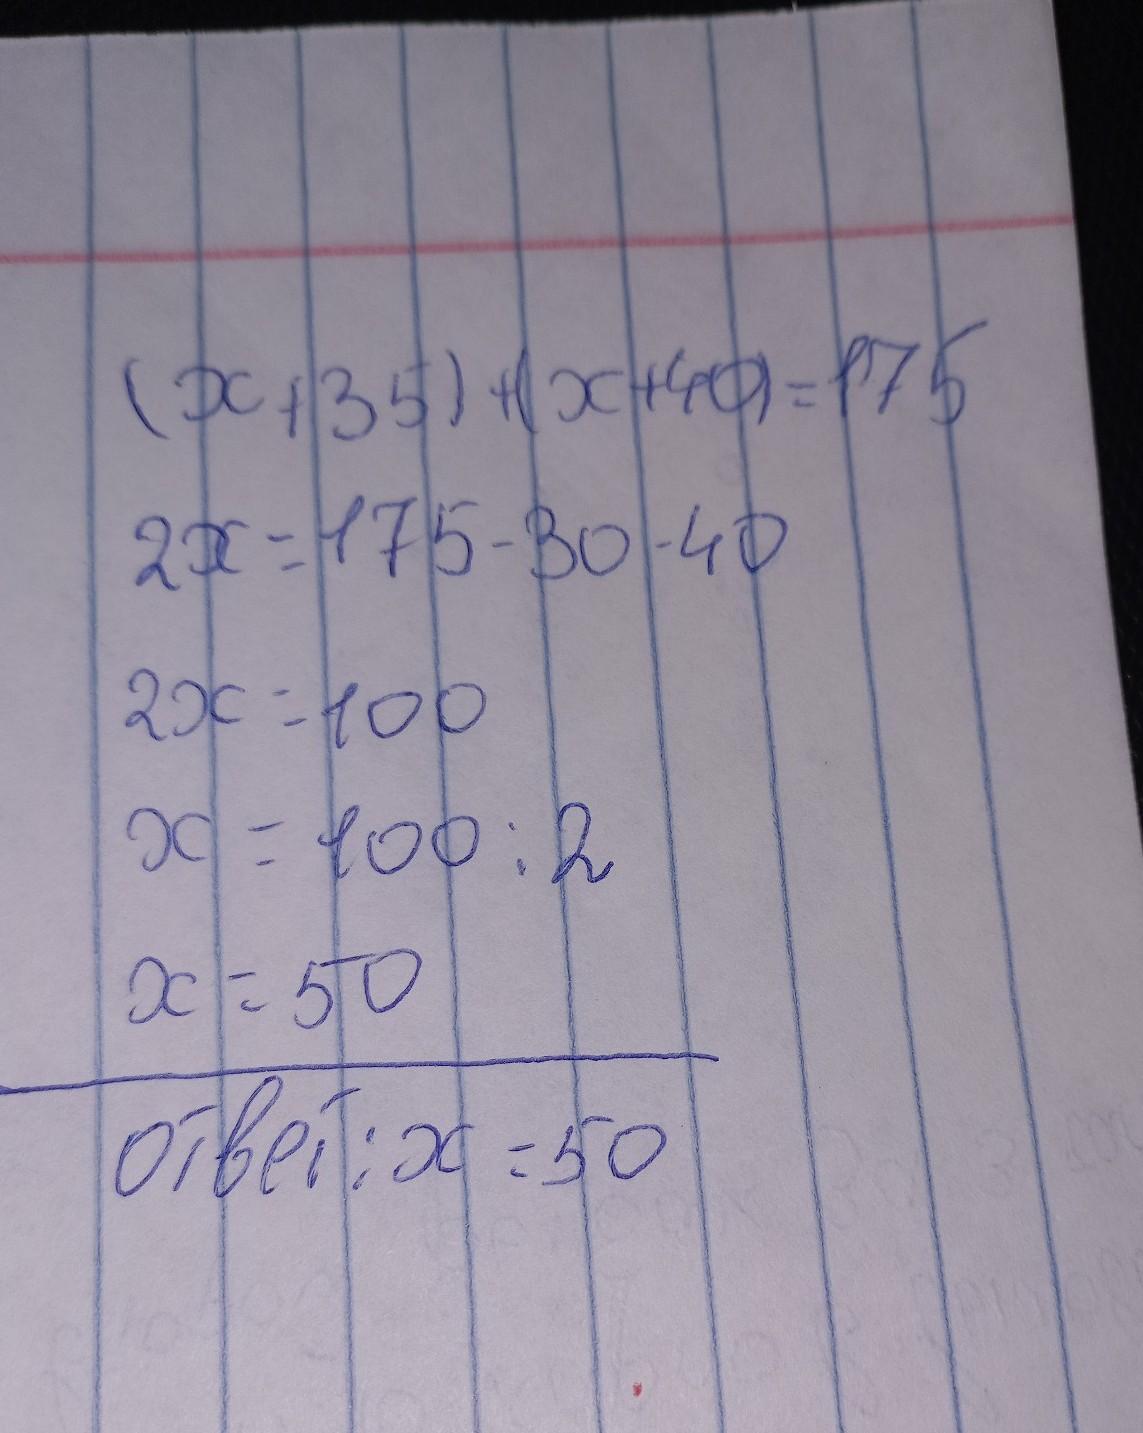 (x+35)+(x+40)=175
2x=175-30-40
2x=100
x=100:2
x=50
ответ: x=50